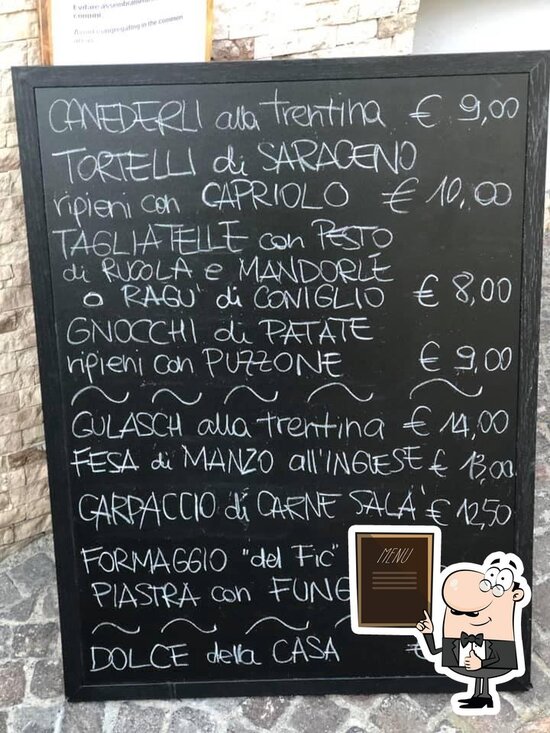 Evitare assembramenti
comuni.
Avoid congregating in the common
CANEDERLI alla trentina € 9,00
TORTELLI di SARACENO
ripieni con CAPRIOLO € 10,00
TAGLIATELLE con PESTO
di RUCOLA e MANDORLE
o RAGU' di CONIGLIO € 8,00
GNOCCHI di PATATE
ripieni con PUZZONE € 9,00
GULASCH alla trentina € 14,00
FESA di MANZO all'INGLESE € 13,00
CARPACCIO di CARNE SALA' € 12,50
FORMAGGIO "del Fic"
PIASTRA con FUNG
DOLCE della CASA €
MENU